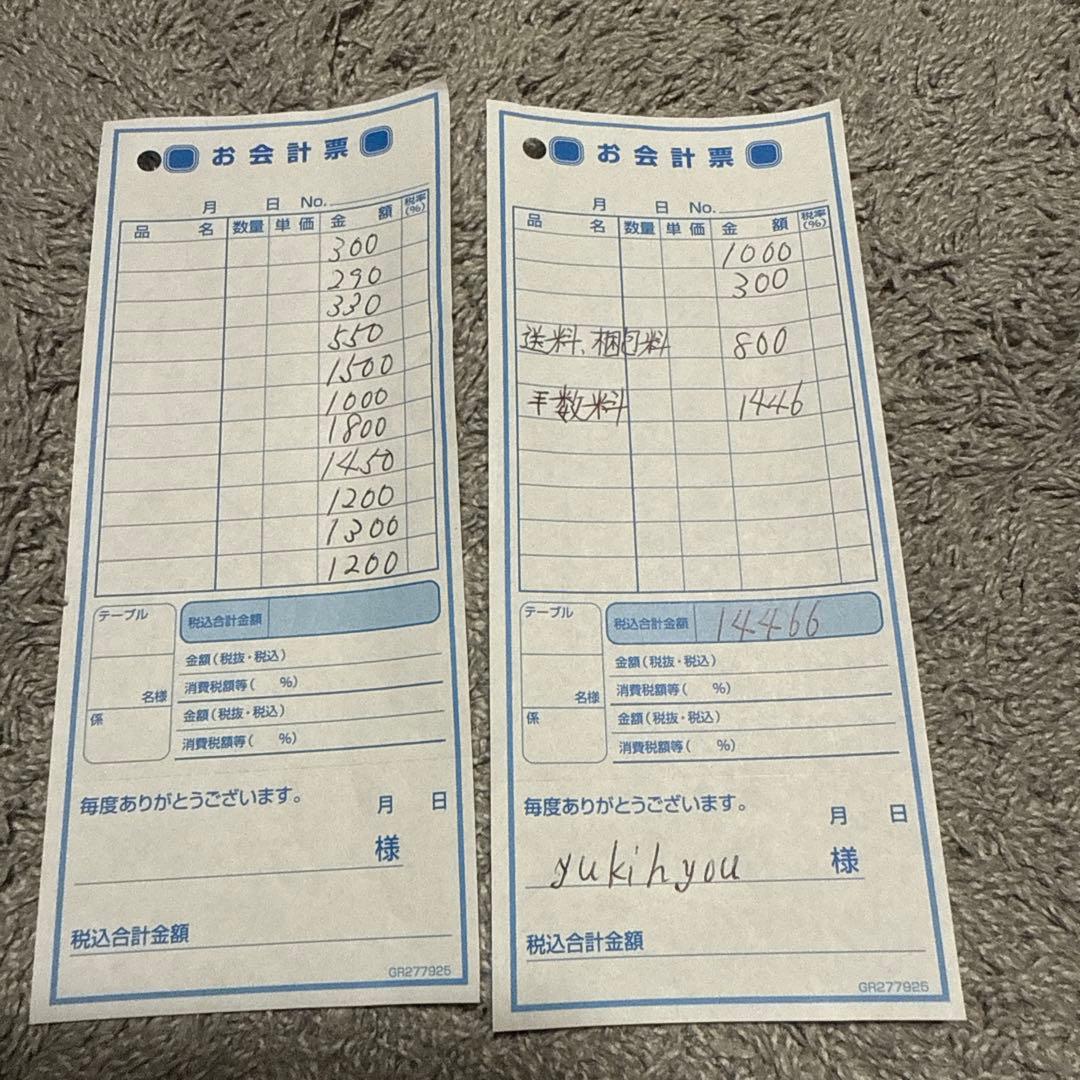 お会計票
月 日 No.
品名 数量 単価 金額 税率(%)
300
290
330
550
1500
1000
1800
1450
1200
1300
1200
テーブル
税込合計金額
金額(税抜・税込)
名様
消費税額等( %)
係
金額(税抜・税込)
消費税額等( %)
毎度ありがとうございます。
月 日
様
税込合計金額
GR277925
お会計票
月 日 No.
品名 数量 単価 金額 税率(%)
1000
300
送料、梱包料 800
手数料 1446
テーブル
税込合計金額 14466
金額(税抜・税込)
名様
消費税額等( %)
係
金額(税抜・税込)
消費税額等( %)
毎度ありがとうございます。
月 日
yukihyou 様
税込合計金額
GR277925